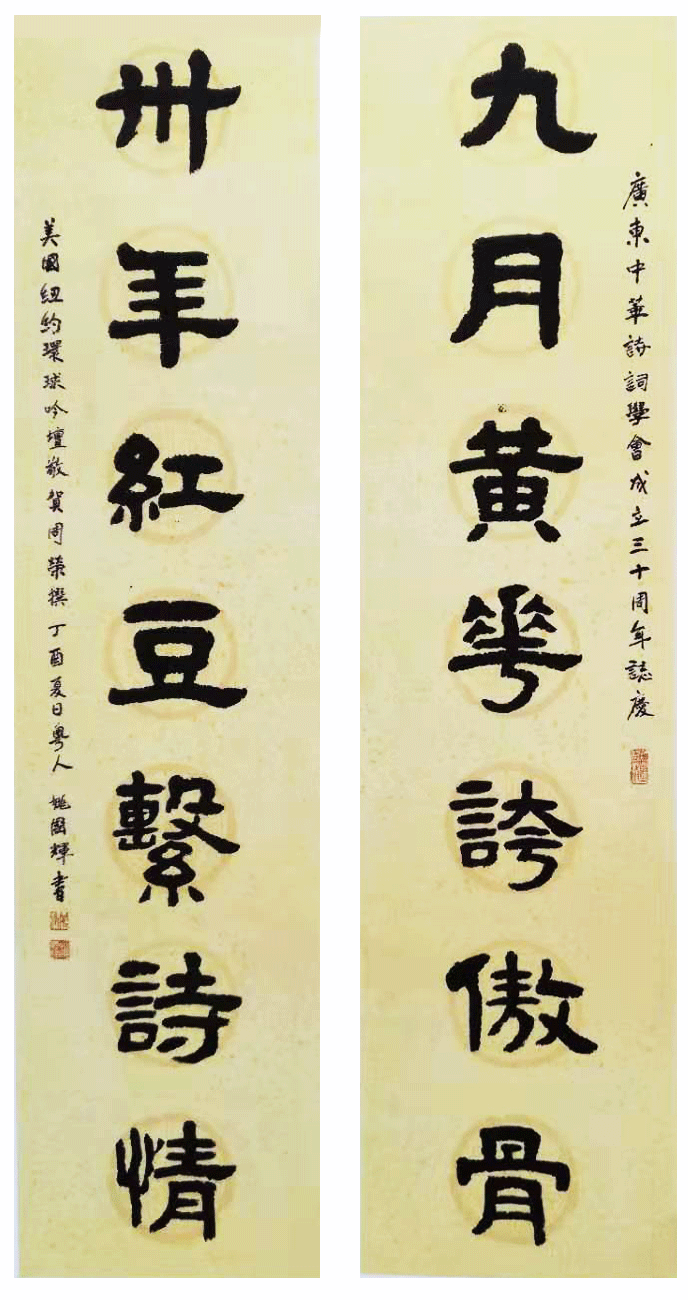 廣東中華詩詞學會成立三十周年誌慶
九月黄華誇傲骨
卅年紅豆繫詩情
美國紐約環球吟壇敬賀周榮撰丁酉夏日粤人姚國輝書